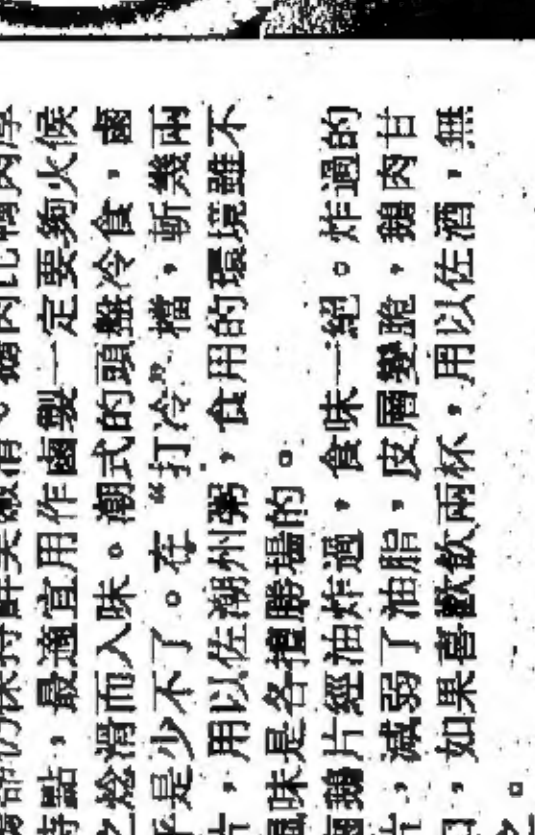 仍保持鮮美嫩滑。鵝肉比鴨肉厚
特點，最適宜用作鹵製一定要夠火候
之焾滑而入味。潮式的頭盤冷食，鹵
乎是少不了。在“打冷”檔，斬幾兩
片，用以佐潮州粥，食用的環境雖不
風味是各擅勝場的。
鵝片經油炸過，食味一絕。炸過的
片，減弱了油脂，皮層變脆，鵝肉甘
，如果喜歡飲兩杯，用以佐酒，無
之。